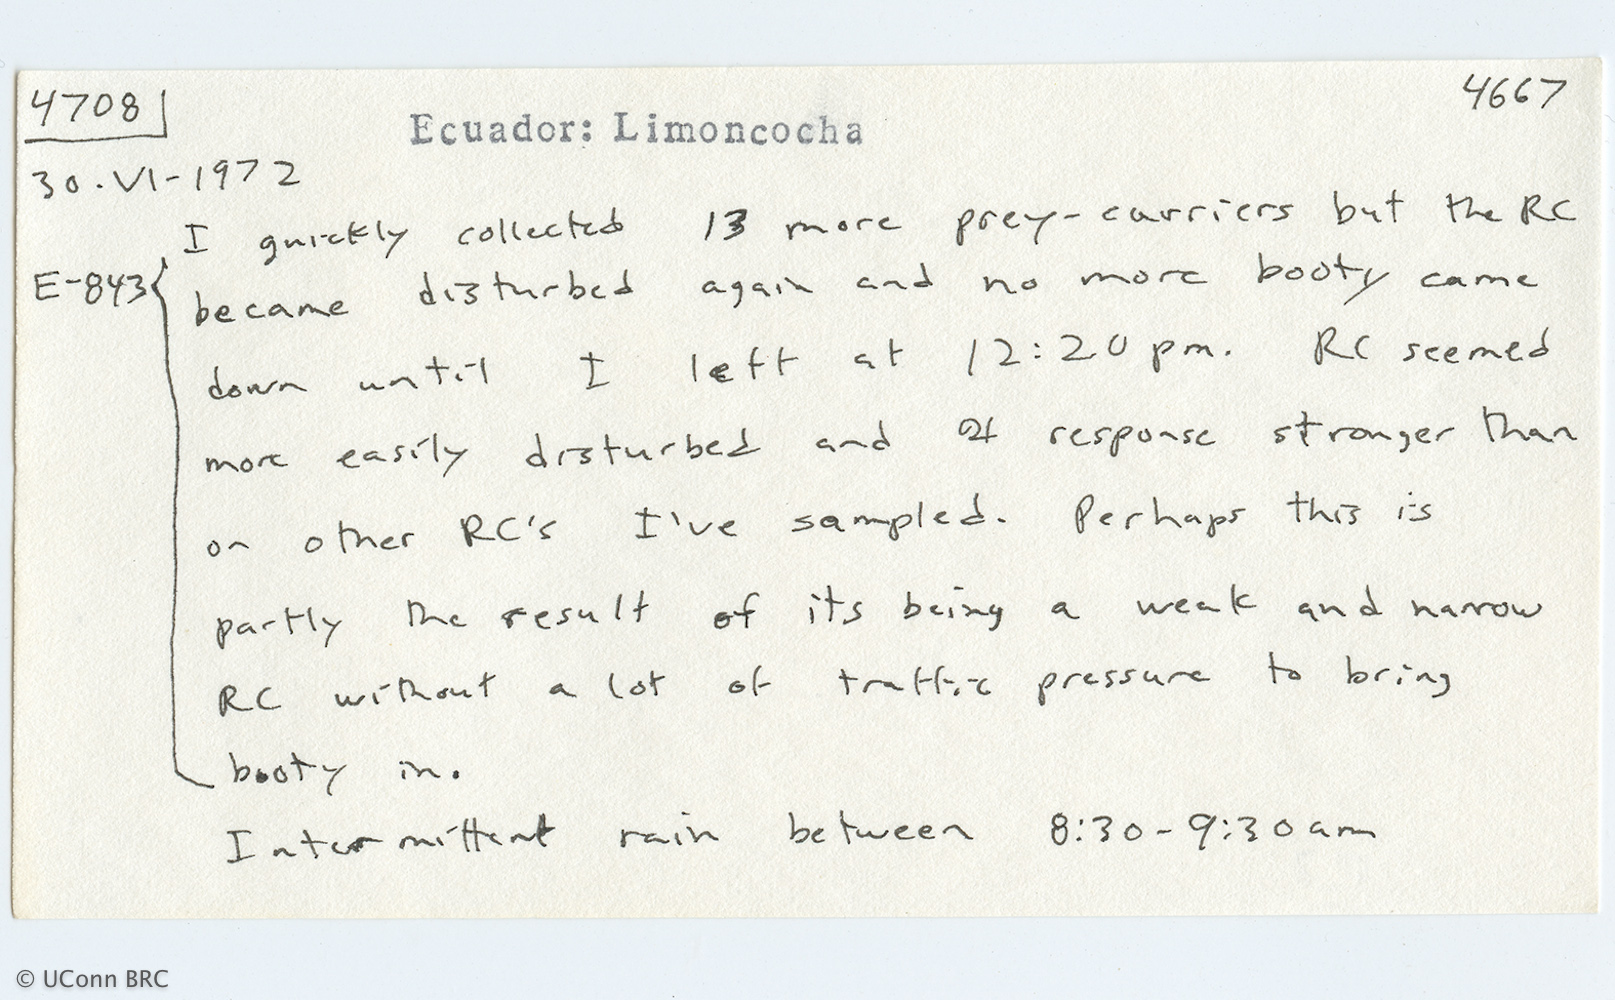 4708
4667
Ecuador: Limoncocha
30.VI-1972
I quickly collected 13 more prey-carriers but the RC
E-843
became disturbed again and no more booty came
down until I left at 12:20 pm. RC seemed
more easily disturbed and response stronger than
on other RC's I've sampled. Perhaps this is
partly the result of its being a weak and narrow
RC without a lot of traffic pressure to bring
booty in.
Intermittent rain between 8:30-9:30 am
© UConn BRC